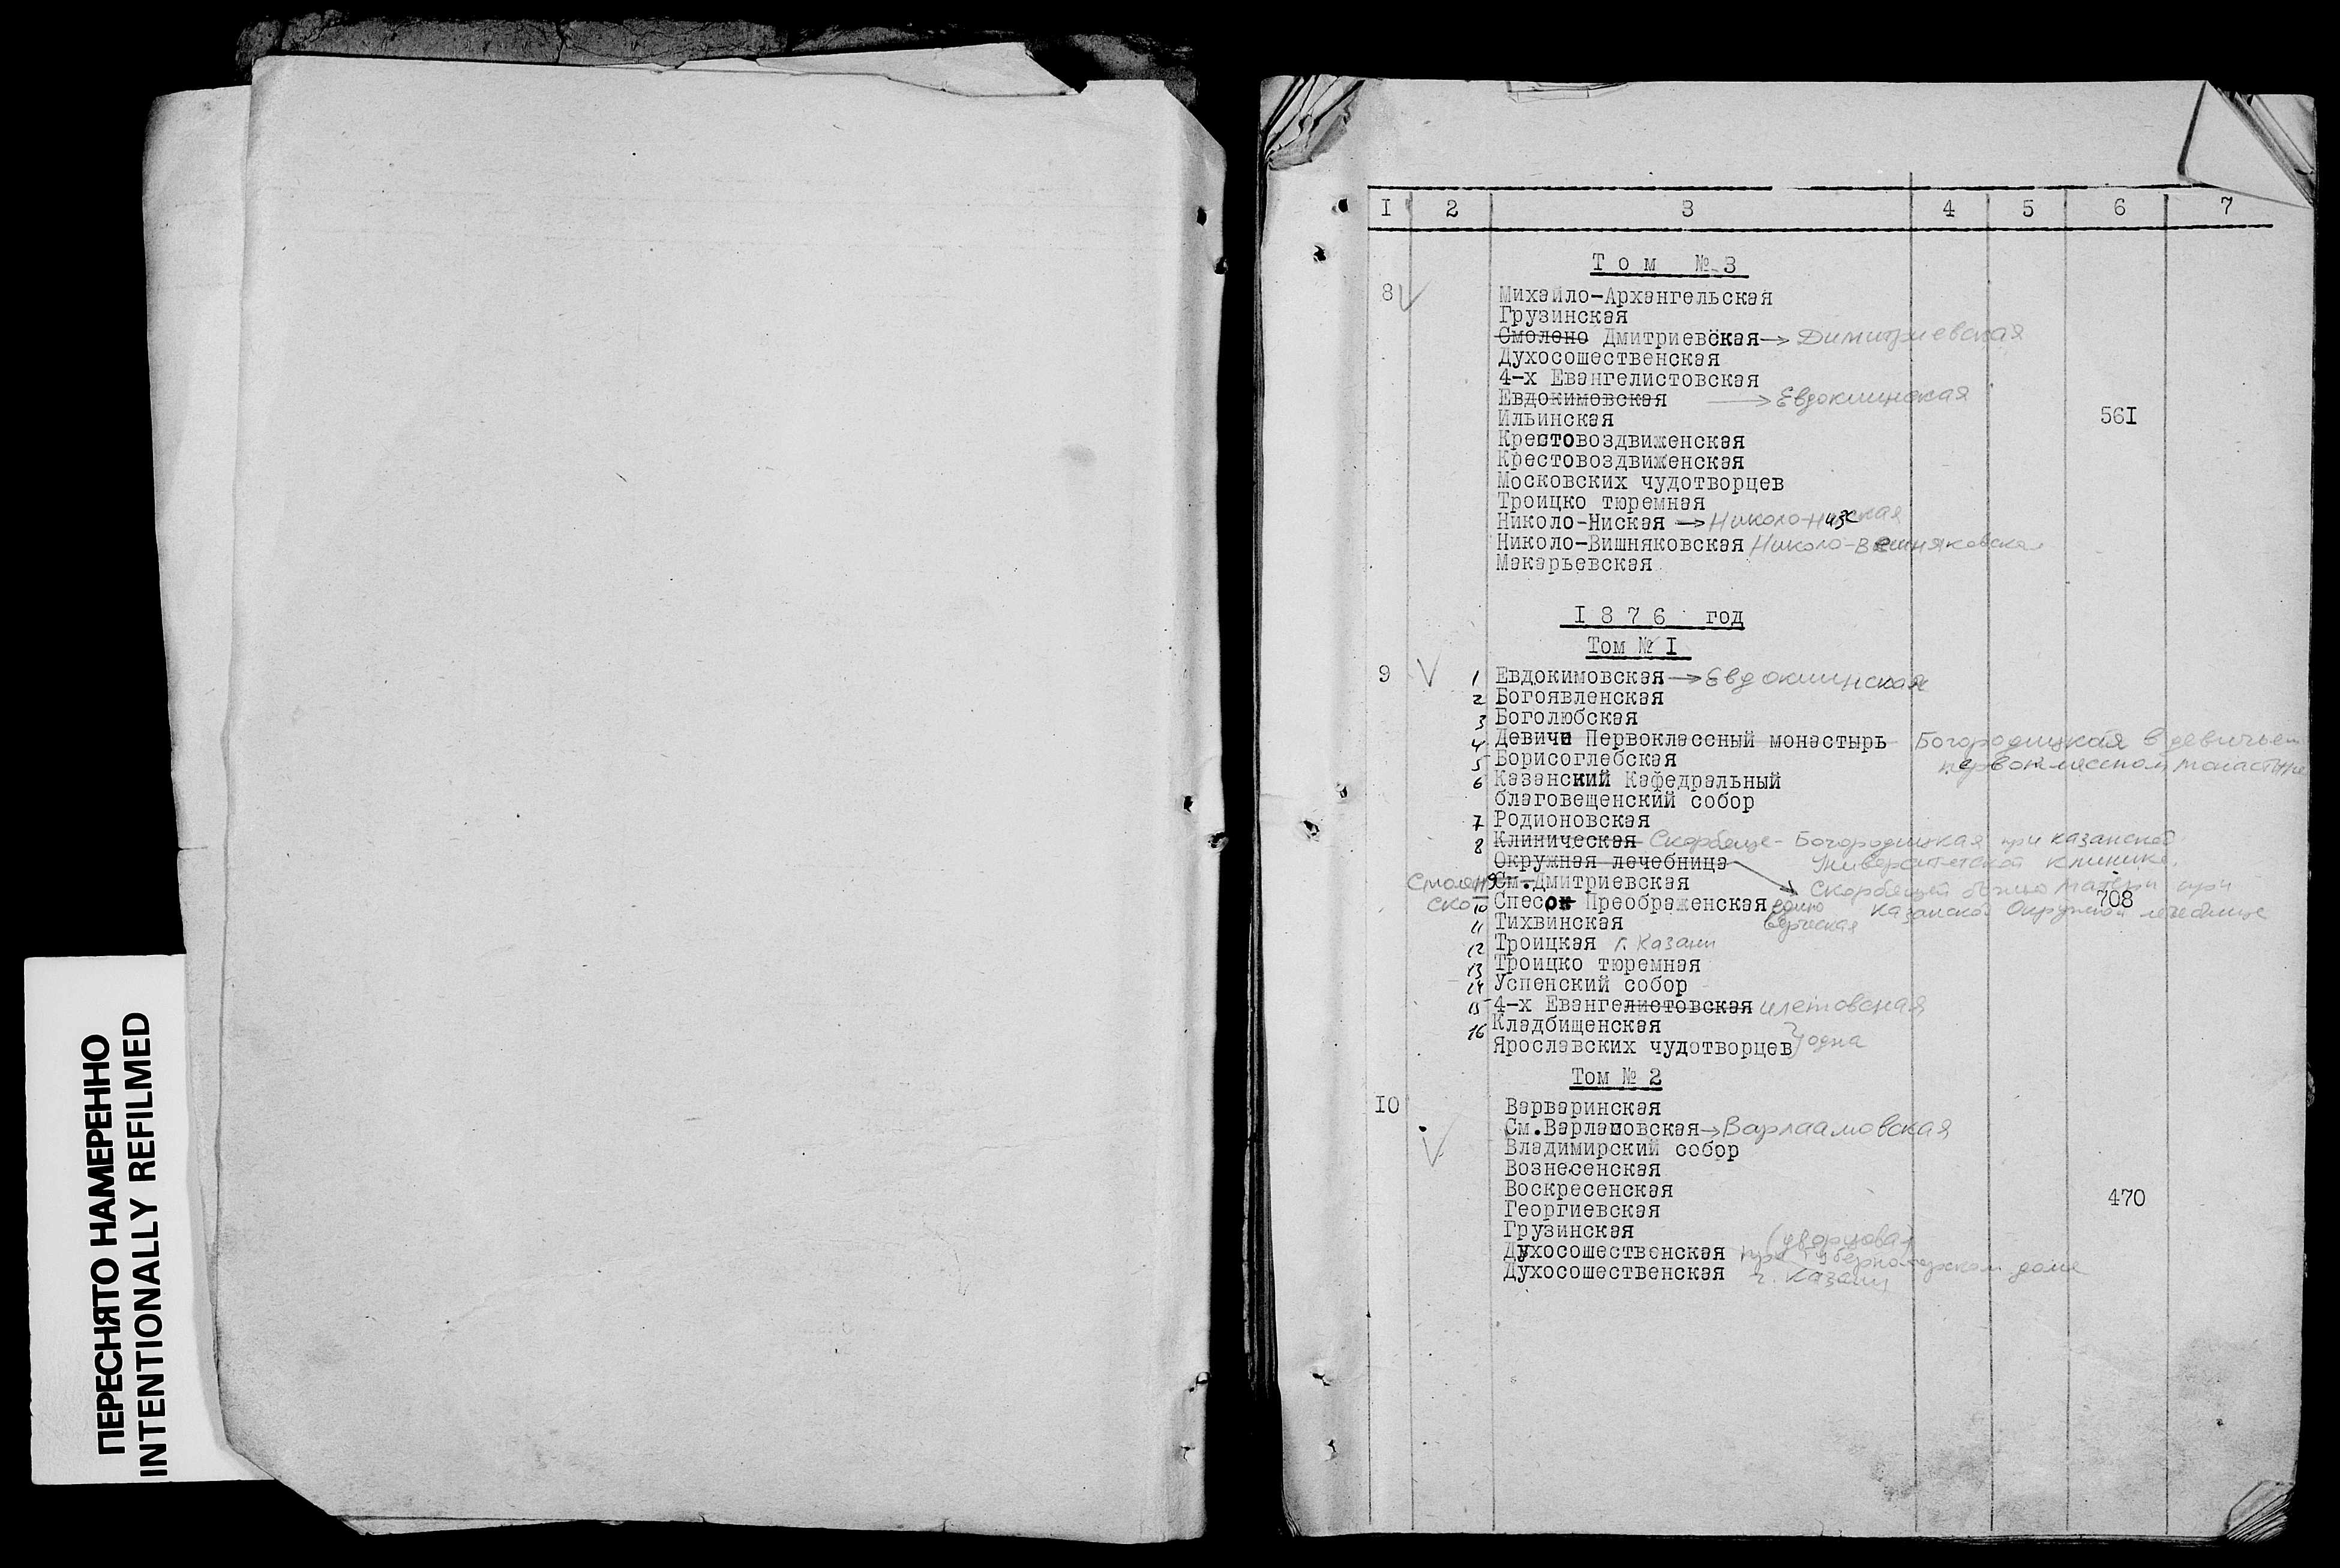 ПЕРЕСНЯТО НАМЕРЕННО
INTENTIONALLY REFILMED
I 2 3 4 5 6 7
Том № 3
8 Михайло-Архангельская
Грузинская
Смолено Дмитриевская → Димитриевская
Духосошественская
4-х Евангелистовская
Евдокимовская → Евдокиинская
Ильинская 56I
Крестовоздвиженская
Крестовоздвиженская
Московских чудотворцев
Троицко тюремная
Николо-Ниская → Николо-Низская
Николо-Вишняковская Николо-Вешняковская
Макарьевская
I876 год
Том № I
9 1 Евдокимовская → Евдокиинская
2 Богоявленская
3 Боголюбская
4 Девичи Первоклассный монастырь Богородицкая в девичьем
первоклассном монастыре
5 Борисоглебская
6 Казанский Кафедральный
благовещенский собор
7 Родионовская
8 Клиническая Скорбяще-Богородицкая при казанской
Университетской клинике.
Окружная лечебница → Скорбящей божьей матери при
Казанской Окружной лечебнице
Смоленско 9 См.Дмитриевская
10 Спесок Преображенская едино
верческая 708
11 Тихвинская
12 Троицкая г. Казани
13 Троицко тюремная
14 Успенский собор
15 4-х Евангелистовская
16 Кладбищенская
Ярославских чудотворцев } одна
Том № 2
I0 Варваринская
См.Варламовская → Варлаамовская
Владимирский собор
Вознесенская
Воскресенская 470
Георгиевская
Грузинская
Духосошественская при Губернаторском доме (дворцовая)
Духосошественская г. Казани